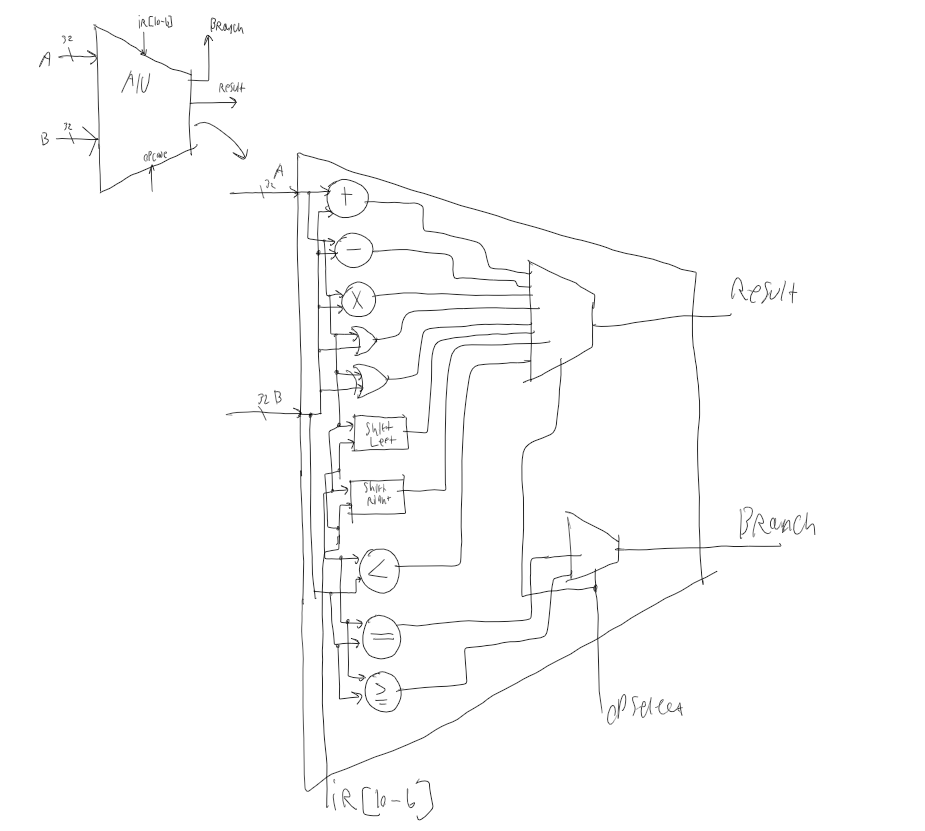 iR[10-6]
Branch
32
A
AlU
Result
32
B
opcode
A
32
+
-
X
Result
32 B
Shift
Left
Shift
Right
<
Branch
=
≥
OPSelect
iR[10-6]